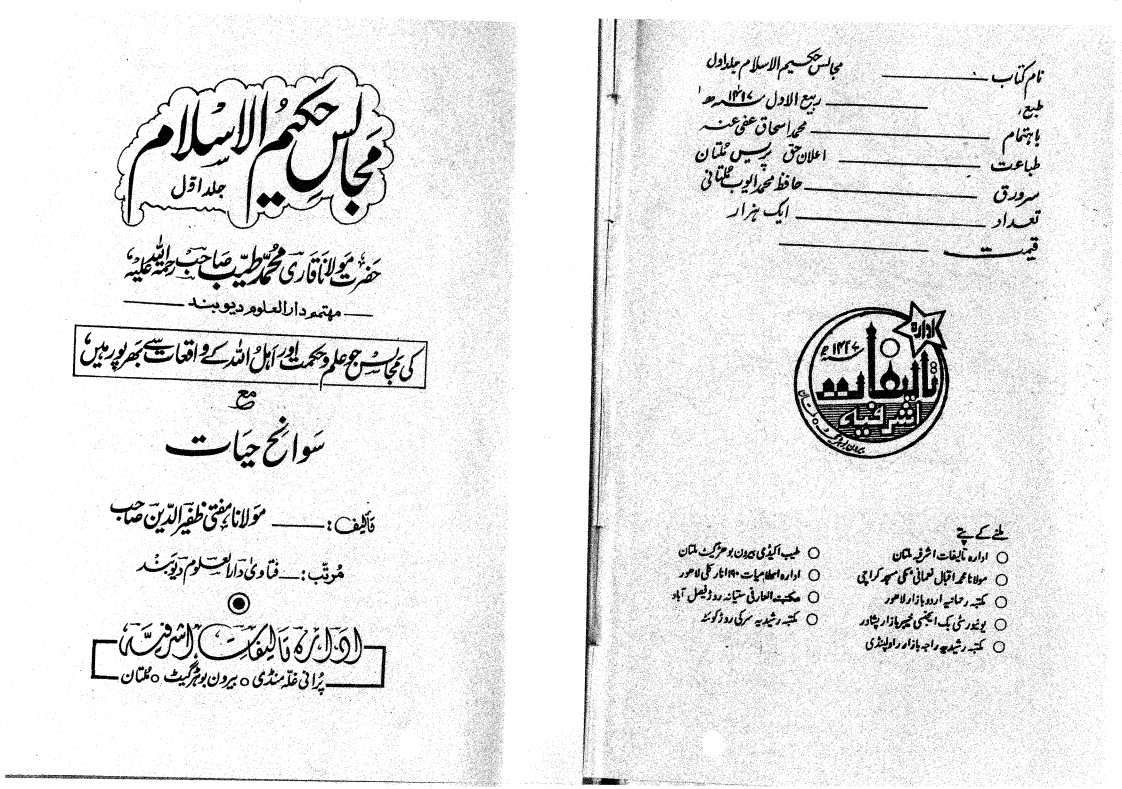 مجالس حکیم الاسلام
جلد اوّل
حضرت مولانا قاری محمد طیّب صاحب رحمۃ اللہ علیہ
مہتمم دارالعلوم دیوبند
کی مجالس جو علم و حکمت اور اہل اللہ کے واقعات سے بھرپور ہیں
مع
سوانح حیات
تألیف : مولانا مفتی ظفیر الدین صاحب
مُرتّب : فتاویٰ دارالعلوم دیوبند
ادارہ تالیفات اشرفیہ
پُرانی غلہ منڈی ○ بیرون بوہڑ گیٹ ○ مُلتان
نام کتاب مجالس حکیم الاسلام جلد اول
طبع ربیع الاول ۱۴۱۷ھ
باہتمام محمد اسحاق عفی عنہ
طباعت اعلان حق پریس مُلتان
سرورق حافظ محمد ایوب مُلتانی
تعداد ایک ہزار
قیمت
ادارہ
تالیفات
اشرفیہ
بیرون بوہڑ گیٹ ملتان
ملنے کے پتے
ادارہ تالیفات اشرفیہ ملتان
مولانا محمد اقبال نعمانی مکی مسجد کراچی
مکتبہ رحمانیہ اردو بازار لاہور
یونیورسٹی بک ایجنسی خیبر بازار پشاور
مکتبہ رشیدیہ راجہ بازار راولپنڈی
طیب اکیڈمی بیرون بوھڑ گیٹ ملتان
ادارہ اسلامیات ۱۹۰ انارکلی لاہور
مکتبۃ العارفی ستیانہ روڈ فیصل آباد
مکتبہ رشیدیہ سرکی روڈ کوئٹہ